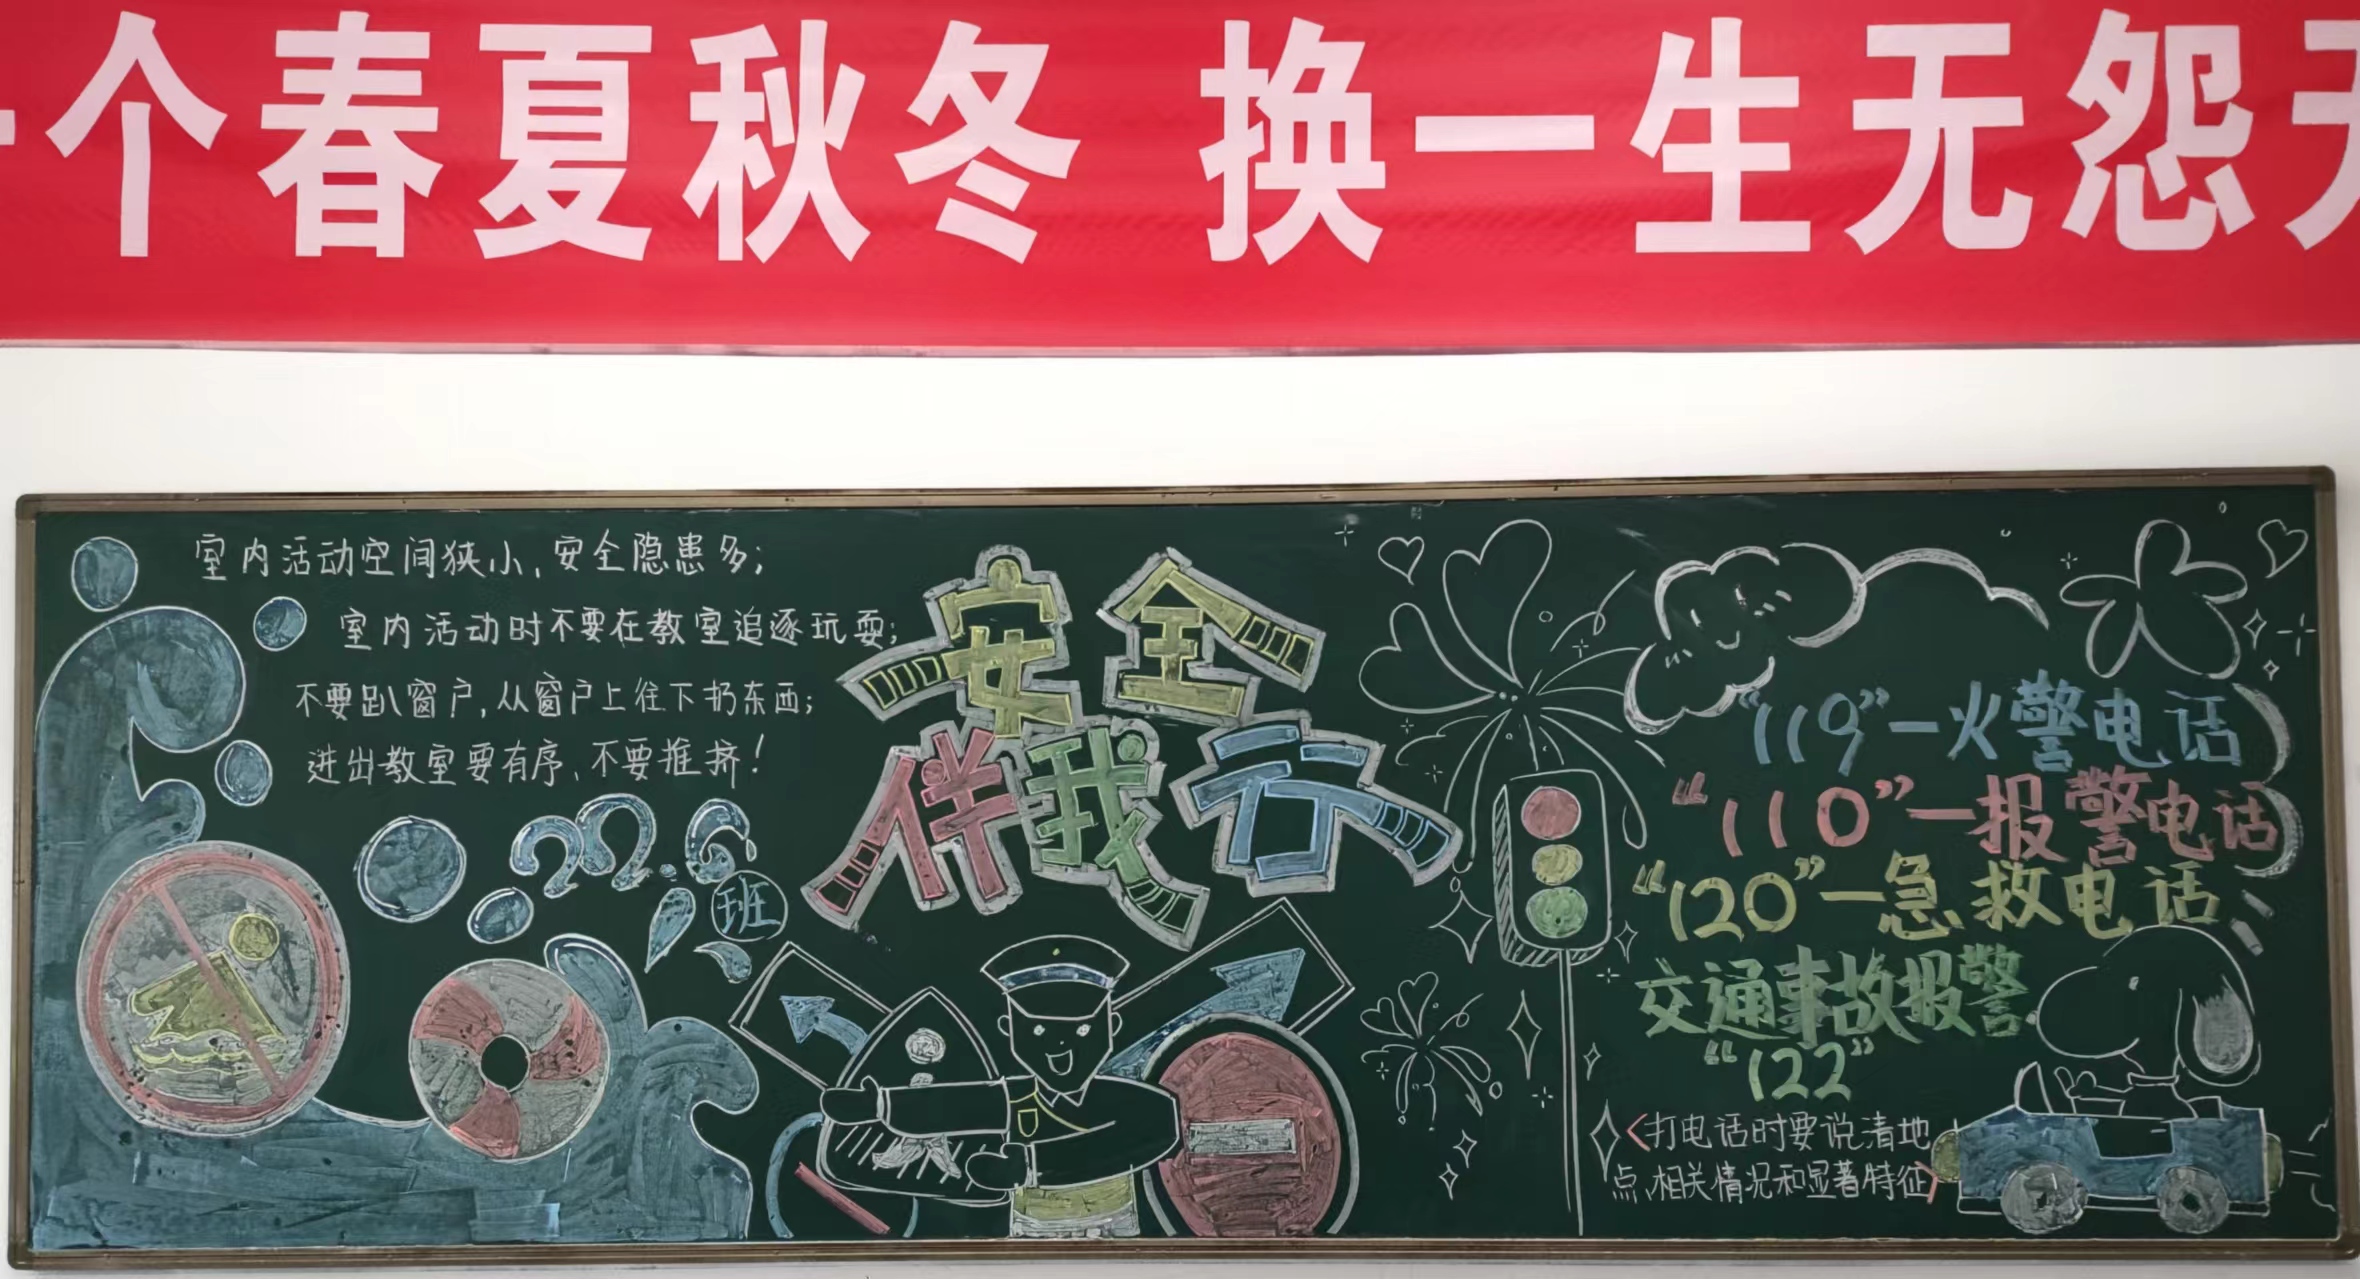 个春夏秋冬 换一生无怨
室内活动空间狭小,安全隐患多;
室内活动时不要在教室追逐玩耍;
不要趴窗户,从窗户上往下扔东西;
进出教室要有序、不要推挤!
2022.6
班
安全
伴我行
“119”—火警电话
“110”—报警电话
“120”—急救电话
交通事故报警
“122”
<打电话时要说清地
点、相关情况和显著特征>